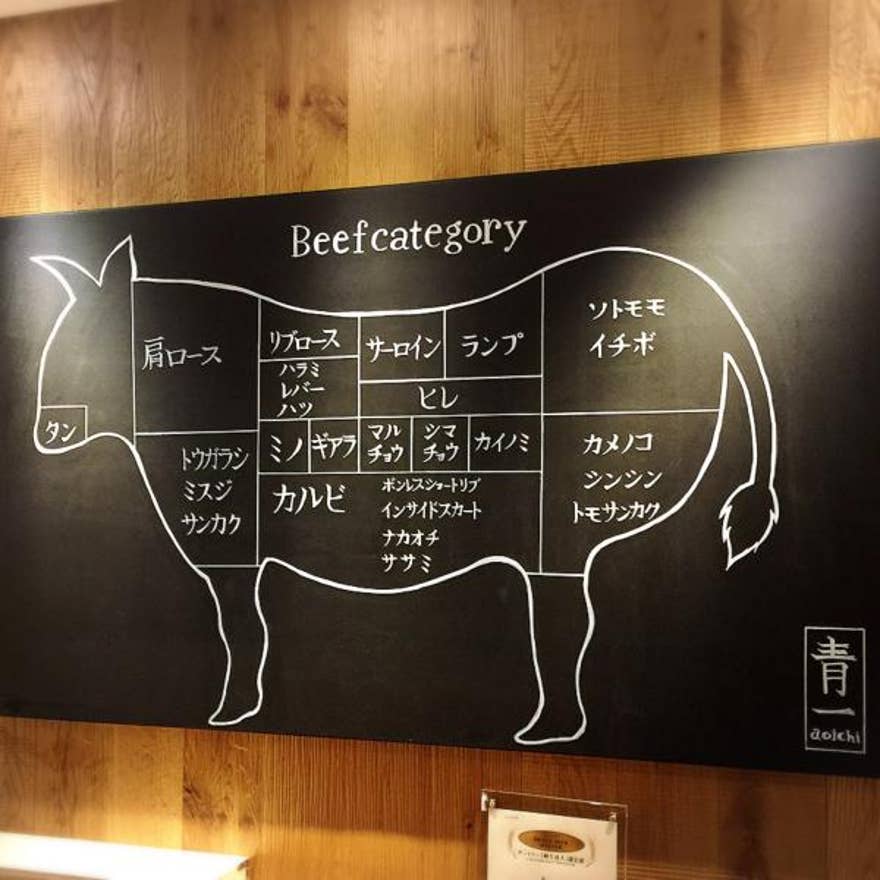 Beefcategory
肩ロース
リブロース
サーロイン
ランプ
ソトモモ
イチボ
ハラミ
レバー
ハツ
ヒレ
タン
トウガラシ
ミスジ
サンカク
ミノ
ギアラ
マル
チョウ
シマ
チョウ
カイノミ
カメノコ
シンシン
トモサンカク
カルビ
ボンレスショートリブ
インサイドスカート
ナカオチ
ササミ
青一
aoichi